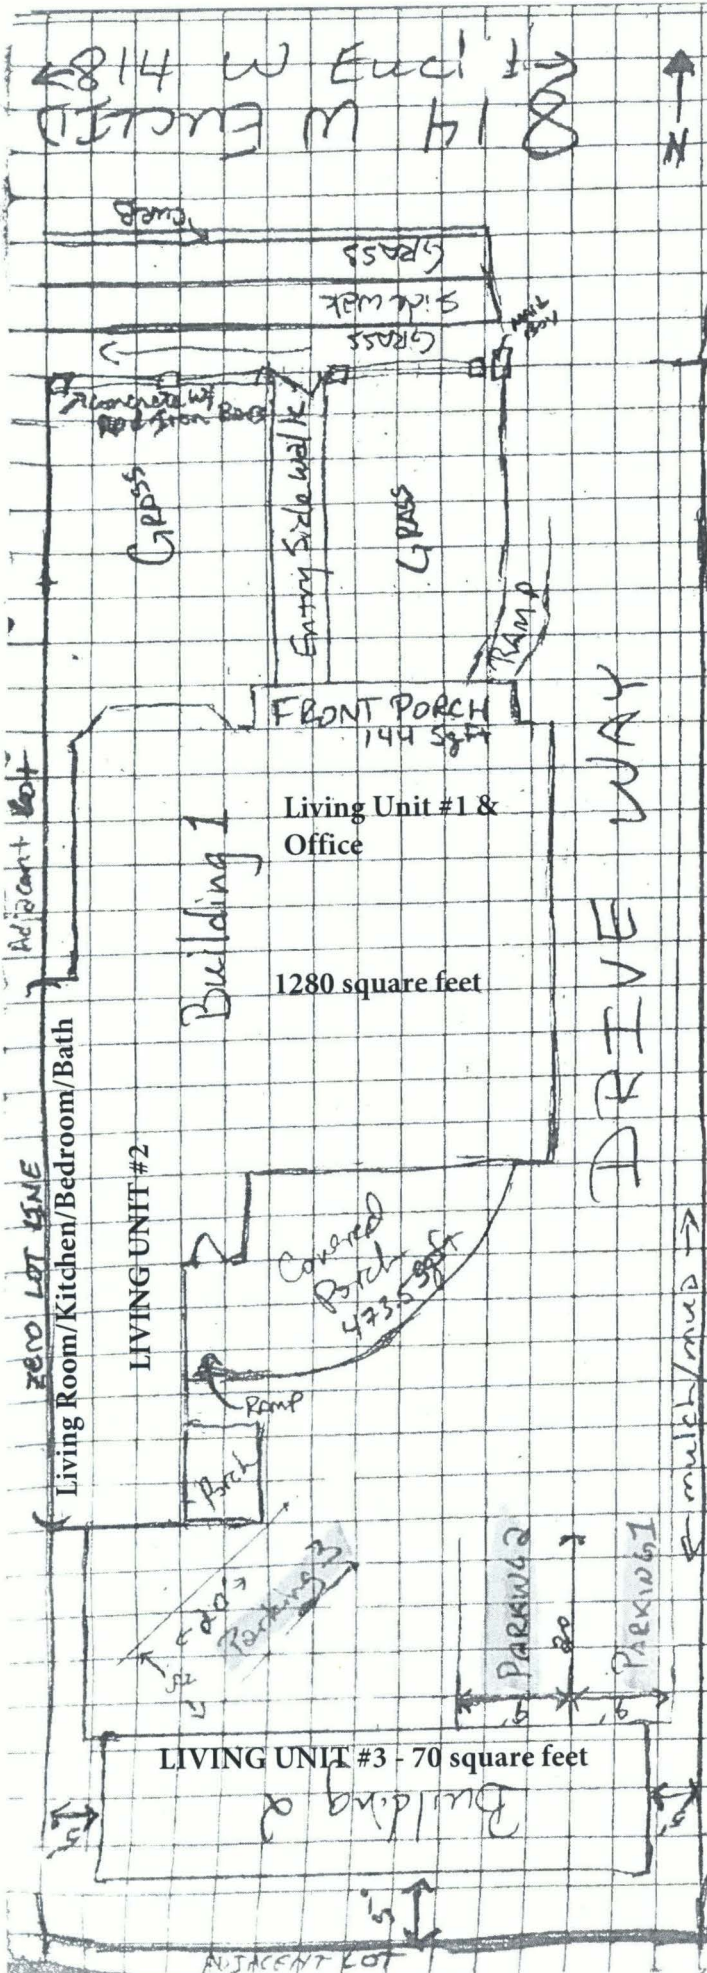 814 W Eucl
814 W EUCLID
N
CURB
GRASS
Sidewalk
GRASS
MAIL
BOX
Concrete w/
Iron Bars
GRASS
Entry Sidewalk
GRASS
RAMP
FRONT PORCH
144 Sqft
DRIVE WAY
Adjacant Lot
Building 1
Living Unit #1 &
Office
1280 square feet
ZERO LOT LINE
Living Room/Kitchen/Bedroom/Bath
LIVING UNIT #2
Covered
Porch
473.5 Sqft
Ramp
Porch
mulch/mud
20'
Parking 3
PARKING 2
20
PARKING 1
9'
9'
LIVING UNIT #3 - 70 square feet
Building 2
5'
5'
5'
ADJACENT LOT